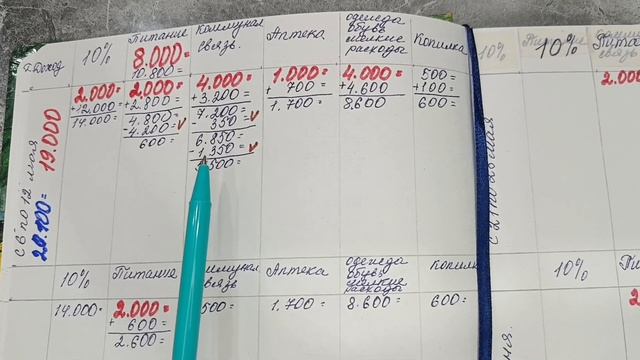 Доход
10%
Питание
8.000=
10.800=
Коммунал
связь.
Аптека
одежда
обувь
мелкие
расходы
Копилка
10%
10%
Пита
с 8 по 12 июля
20.100=
19.000
2.000=
+12.000=
14.000=
2.000=
+2.800=
4.800=
-4.200=
600=
4.000=
+3.200=
7.200=
350=
6.850=
-1.350=
500=
1.000=
+ 700=
1.700=
4.000=
+4.600=
8.600
500=
+100=
600=
2.000
10%
Питание
Коммунал
связь
Аптека
одежда
обувь
мелкие
расходы
Копилк
10%
14.000=
2.000=
+ 600=
2.600=
500=
1.700=
8.600=
600=